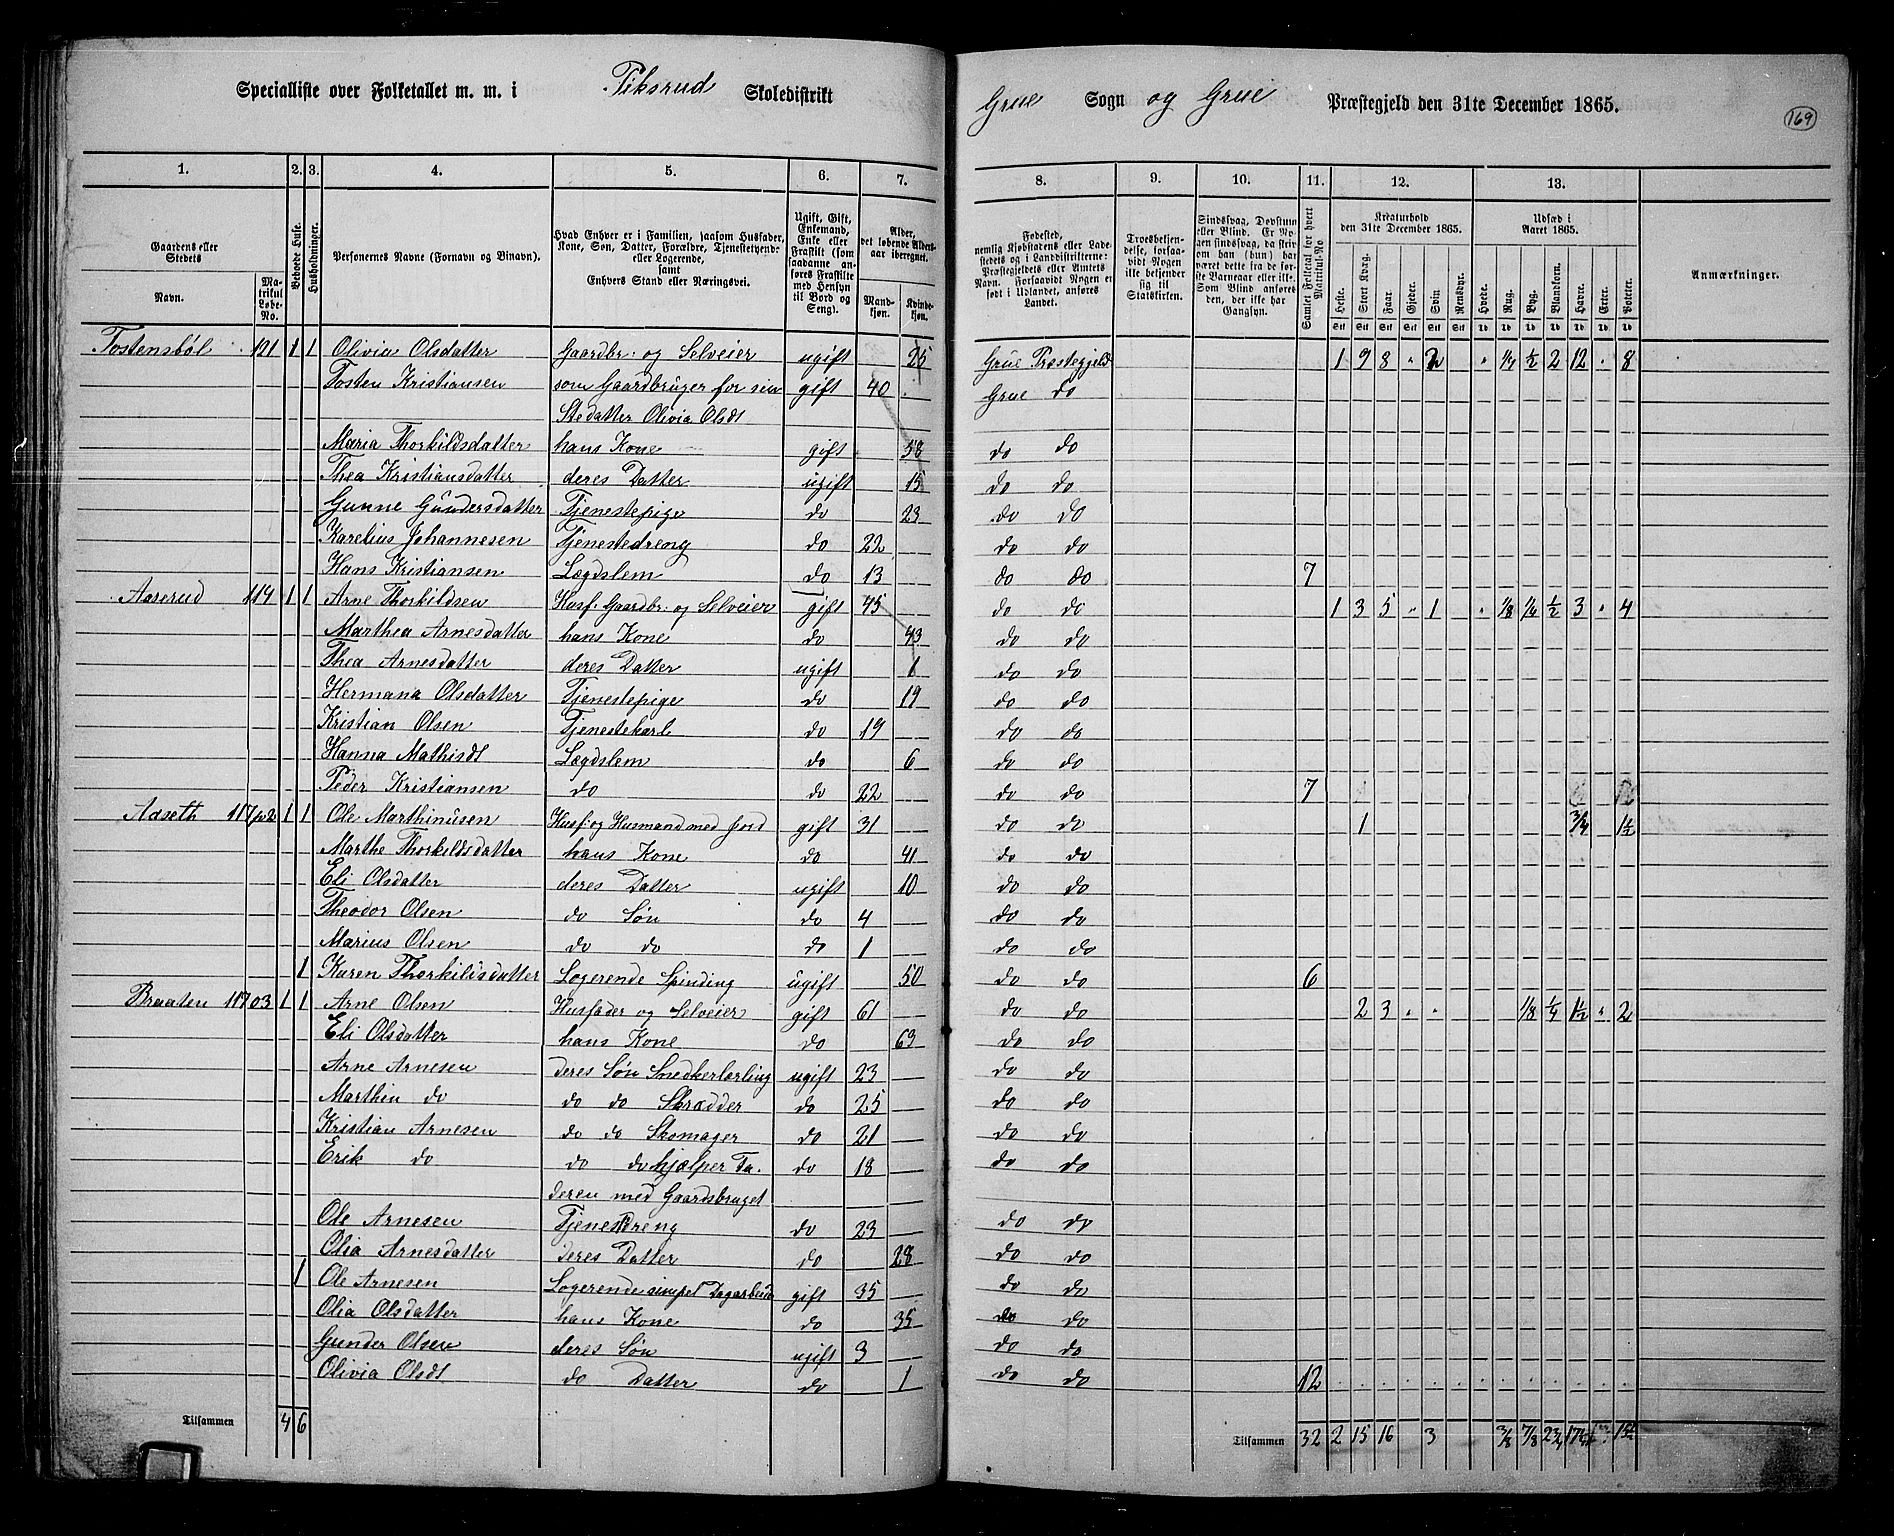 Specialliste over Folketallet m. m. i Piksrud Skoledistrikt
Grue Sogn og Grue Præstegjeld den 31te December 1865.
169
1. 2. 3. 4. 5. 6. 7. 8. 9. 10. 11. 12. 13.
Gaardens eller Stedets
Navn.
Matrikul Løbe-No.
Beboede Huse.
Husholdninger.
Personernes Navne (Fornavn og Binavn).
Hvad Enhver er i Familien, saasom Husfader, Kone, Søn, Datter, Forældre, Tjenestetyende eller Logerende,
samt
Enhvers Stand eller Næringsvei.
Ugift, Gift, Enkemand, Enke eller Fraskilt (som saadanne anføres Fraskilte med Hensyn til Bord og Seng).
Alder, det løbende Aldersaar iberegnet.
Mandkjøn.
Kvindekjøn.
Fødested,
nemlig Kjøbstadens eller Ladestedets eller i Landdistrikterne: Præstegjeldets eller Amtets Navn. Forsaavidt Nogen er født i Udlandet, anføres Landet.
Troesbekjendelse, forsaavidt Nogen ikke bekjender sig til Statskirken.
Sindssvag, Døvstum eller Blind. Om Nogen sindssvag, da hvorom han (hun) har været dette fra de første Barneaar eller ikke. Som Blind anføres den, der ikke har Gangsyn.
Samlet Folketal for hvert Matrikul-No.
Kreaturhold den 31te December 1865.
Heste. Stort Kvæg. Faar. Gjeder. Svin. Rensdyr.
Udsæd i Aaret 1865.
Hvede. Rug. Byg. Blandkorn. Havre. Erter. Poteter.
Anmærkninger.
Tostensböl 121 1 1 Olivia Olsdatter Gaardbr: og Selveier ugift 25 Grue Præstegjeld 1 9 8 " 2 " 1/4 1/2 2 12 " 8
Tosten Kristiansen som Gaardbruger for sin gift 40 Grue do
Stedatter Olivia Olsdt
Maria Thorkildsdatter hans Kone gift 58 do do
Thea Kristiansdatter deres Datter ugift 15 do do
Gunne Gundersdatter Tjenestepige do 23 do do
Karelius Johannesen Tjenestedreng do 22 do do
Hans Kristiansen Lægdslem do 13 do do 7
Aaserud 114 1 1 Arne Thorkildsen Husf. Gaardbr: og Selveier gift 45 do do 1 3 5 " 1 " 1/8 1/4 1/2 3 " 4
Marthea Arnesdatter hans Kone do 43 do do
Thea Arnesdatter deres Datter ugift 1 do do
Hermana Olsdatter Tjenestepige do 19 do do
Kristian Olsen Tjenestekarl do 19 do do
Hanna Mathisdt Lægdslem do 6 do do
Peder Kristiansen do do 22 do do 7
Aaseth 117 p2 1 1 Ole Marthinusen Husf: og Husmand med Jord gift 31 do do 1 3/4 1 1/2
Marthe Thorkildsdatter hans Kone do 41 do do
Eli Olsdatter deres Datter ugift 10 do do
Theodor Olsen do Søn do 4 do do
Marius Olsen do do do 1 do do
1 Karen Thorkildsdatter Logerende Spinding ugift 50 do do 6
Braaten 117 03 1 1 Arne Olsen Husfader og Selveier gift 61 do do 2 3 " " 1/8 1/4 1 1/2 " 2
Eli Olsdatter hans Kone do 63 do do
Arne Arnesen deres Søn Snedkerlærling ugift 23 do do
Marthin do do do Skrædder do 25 do do
Kristian Arnesen do do Skomager do 21 do do
Erik do do do hjælper Fa- do 18 do do
deren med Gaardsbruget
Ole Arnesen Tjenestdreng do 23 do do
Olia Arnesdatter deres Datter do 28 do do
1 Ole Arnesen Logerende simpel Dagarbeid gift 35 do do
Olia Olsdatter hans Kone do 35 do do
Gunder Olsen deres Søn ugift 3 do do
Olivia Olsdt do Datter do 1 do do 12
Tilsammen 4 6
Tilsammen 32 2 15 16 3 3/8 7/8 2 3/4 17 1/4 15 1/2